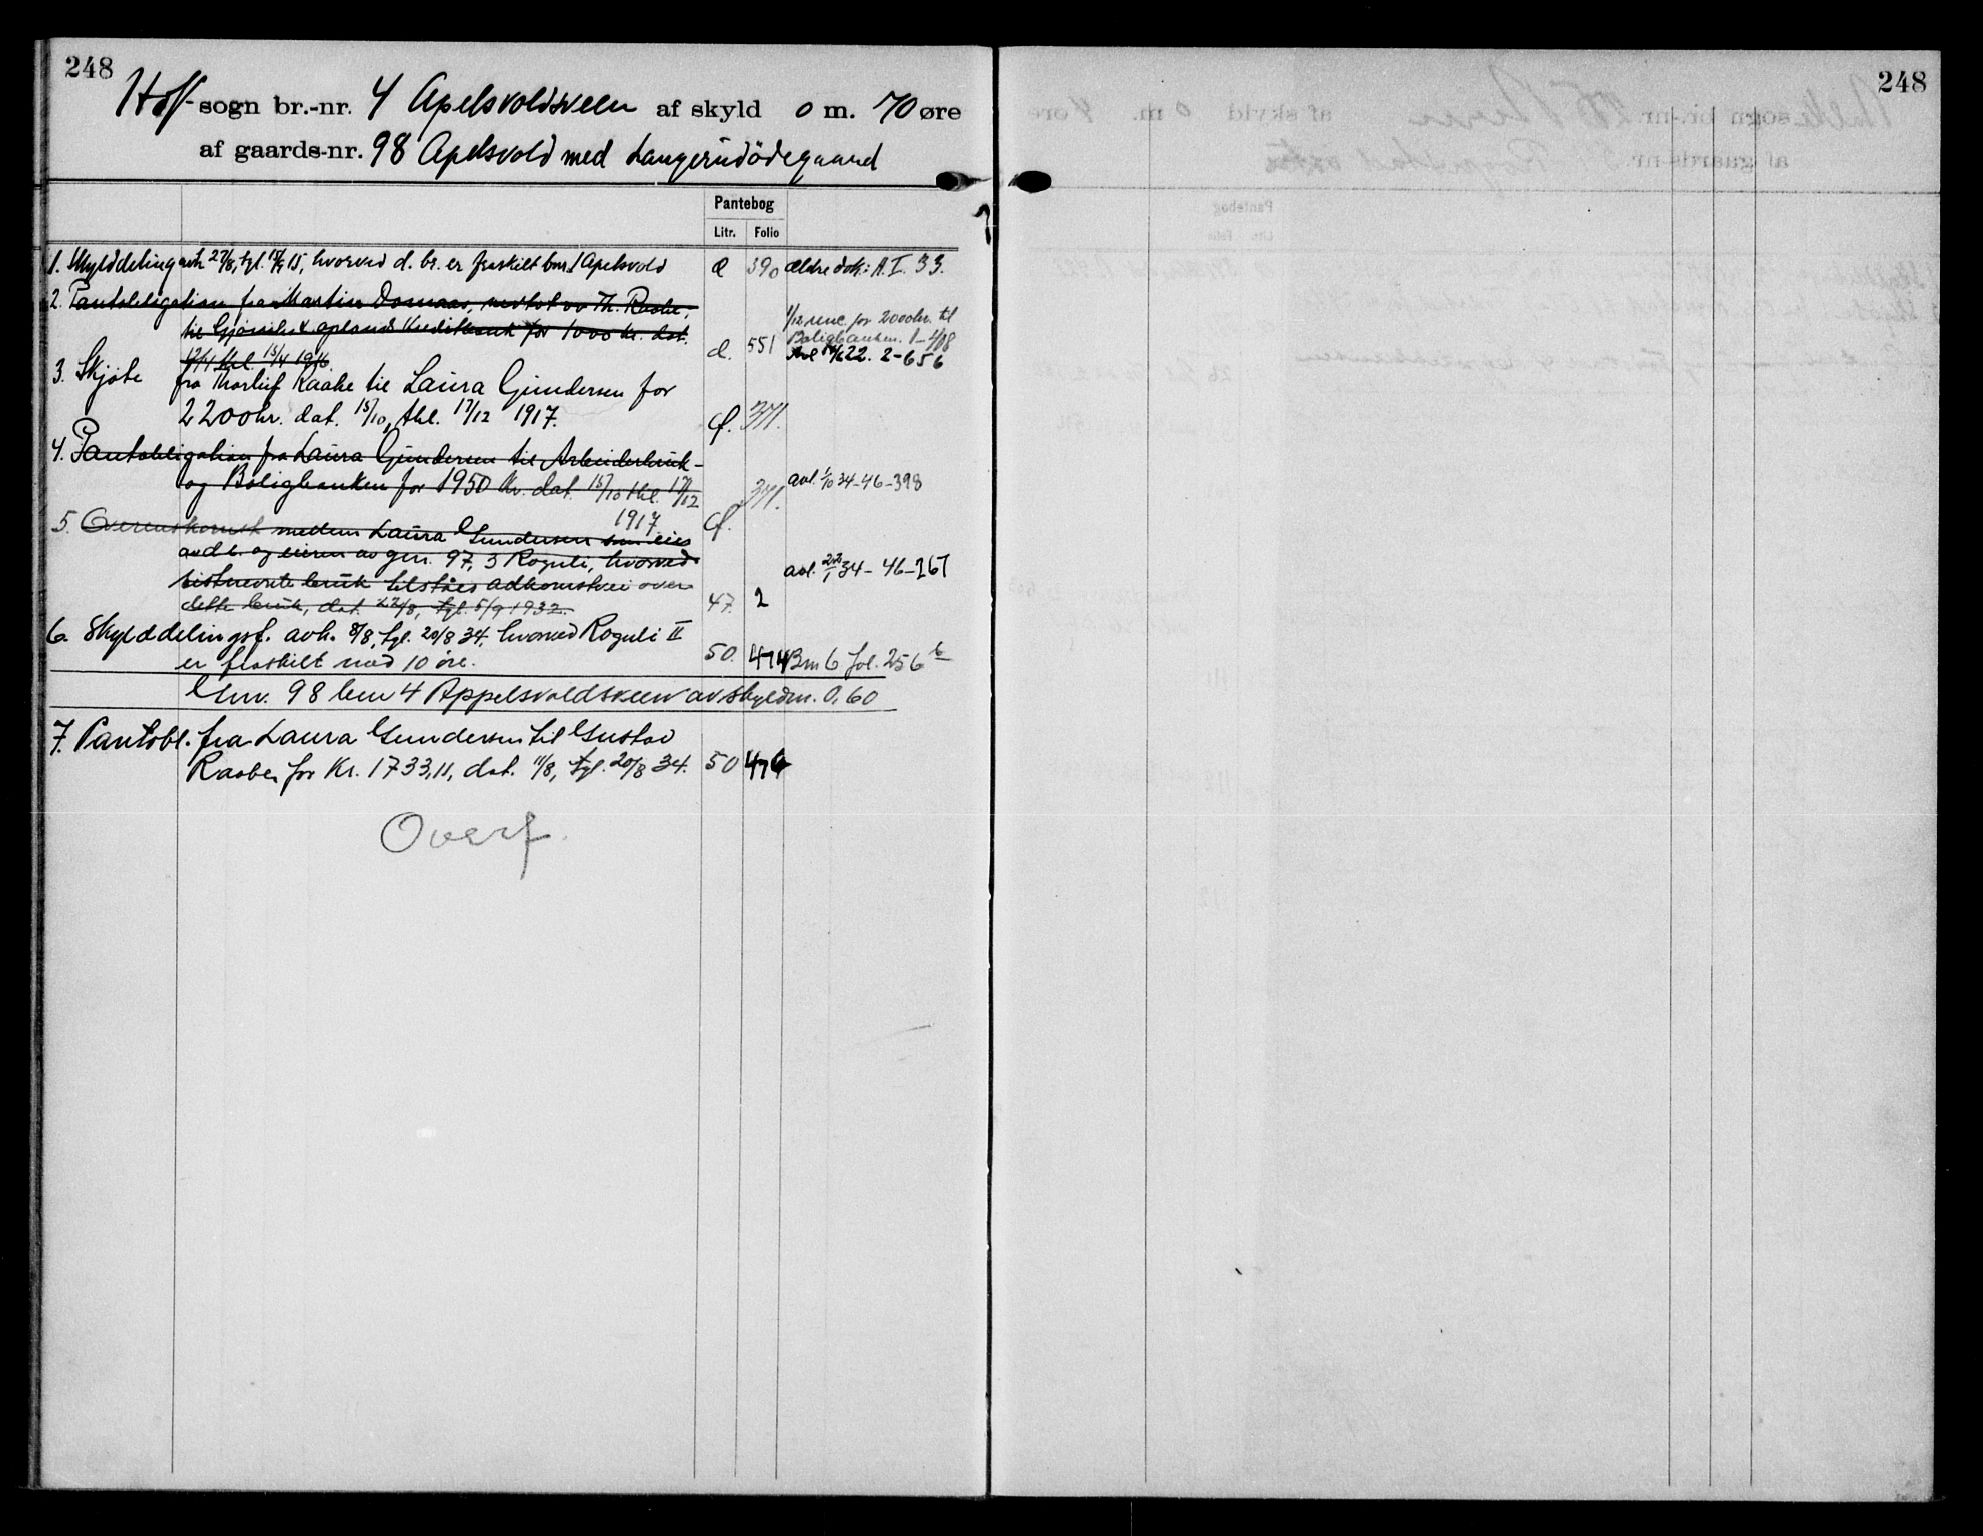 248
Hoff-sogn br.-nr. 4 Apelsvoldsveen af skyld 0 m. 70 øre
af gaards-nr. 98 Apelsvold med Laugerudödegaard
Pantebog
Litr. Folio
1. Skylddeling avh. 27/8, tgl. 15, hvorved d. br. er fraskilt bnr. 1 Apelsvold d 390 Ældre dok: A. I. 33.
2. Pantobligation fra Martin Domaas, vedtat av Th. Raabe,
til Gjøvik & oplands Kreditbank for 1000 kr. dat.
12/4 tkl. 15/4 1916. d. 551 1/12 vviec. for 2000kr. til
Boligbanken. 1-408
Avl 22. 2-656
3. Skjøte fra Thorleif Raabe til Laura Gundersen for
2200kr. dat. 15/10, tkl. 17/12 1917. f. 371.
4. Pantobligation fra Laura Gundersen til Arbeiderbruk-
og Boligbanken for 1950 kr. dat. 15/10 tkl. 17/12
1917 f. 371. avl. 1/10 34-46-398
5. Overenskomst mellem Laura Gundersen som eier
av d. br. og eieren av gnr. 97, 3 Roguli, hvorved
sistnevnte bruk tilståes adkomstvei over
dette bruk, dat. 22/8, tgl. 5/9 1932. 47. 2 avl. 22/1 34-46-267
6. Skylddelingsf. avh. 8/8, tgl. 20/8 34, hvorved Roguli II
er fraskilt med 10 øre. 50. 474 Bm 6 fol. 256 b
Gnr. 98 bnr 4 Appelsvoldsveen av skyldm. 0,60
7. Pantobl. fra Laura Gundersen til Gustav
Raabe, for Kr. 1733,11, dat. 11/8, tgl. 20/8 34. 50 476
Overf.
248